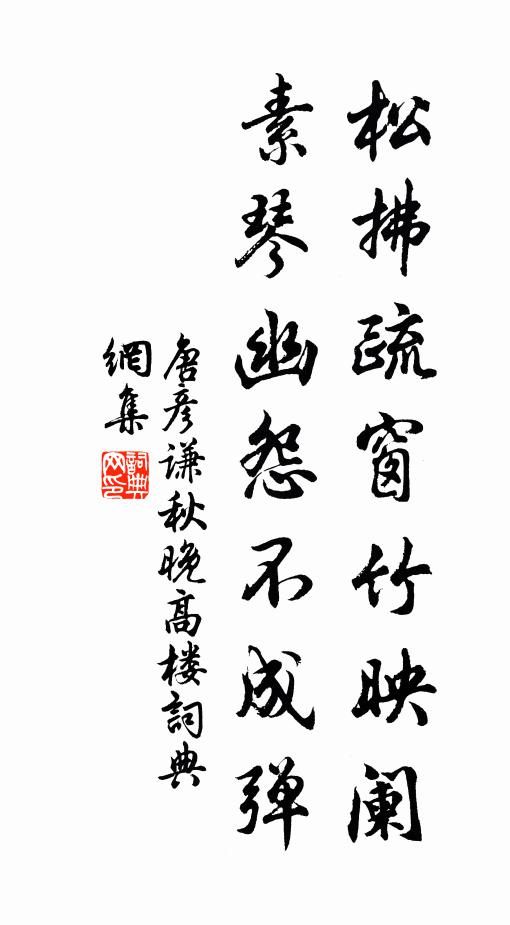 松拂疏窗竹映阑
素琴幽怨不成弹
唐彦谦秋晚高楼詞典
網集
詞典网印